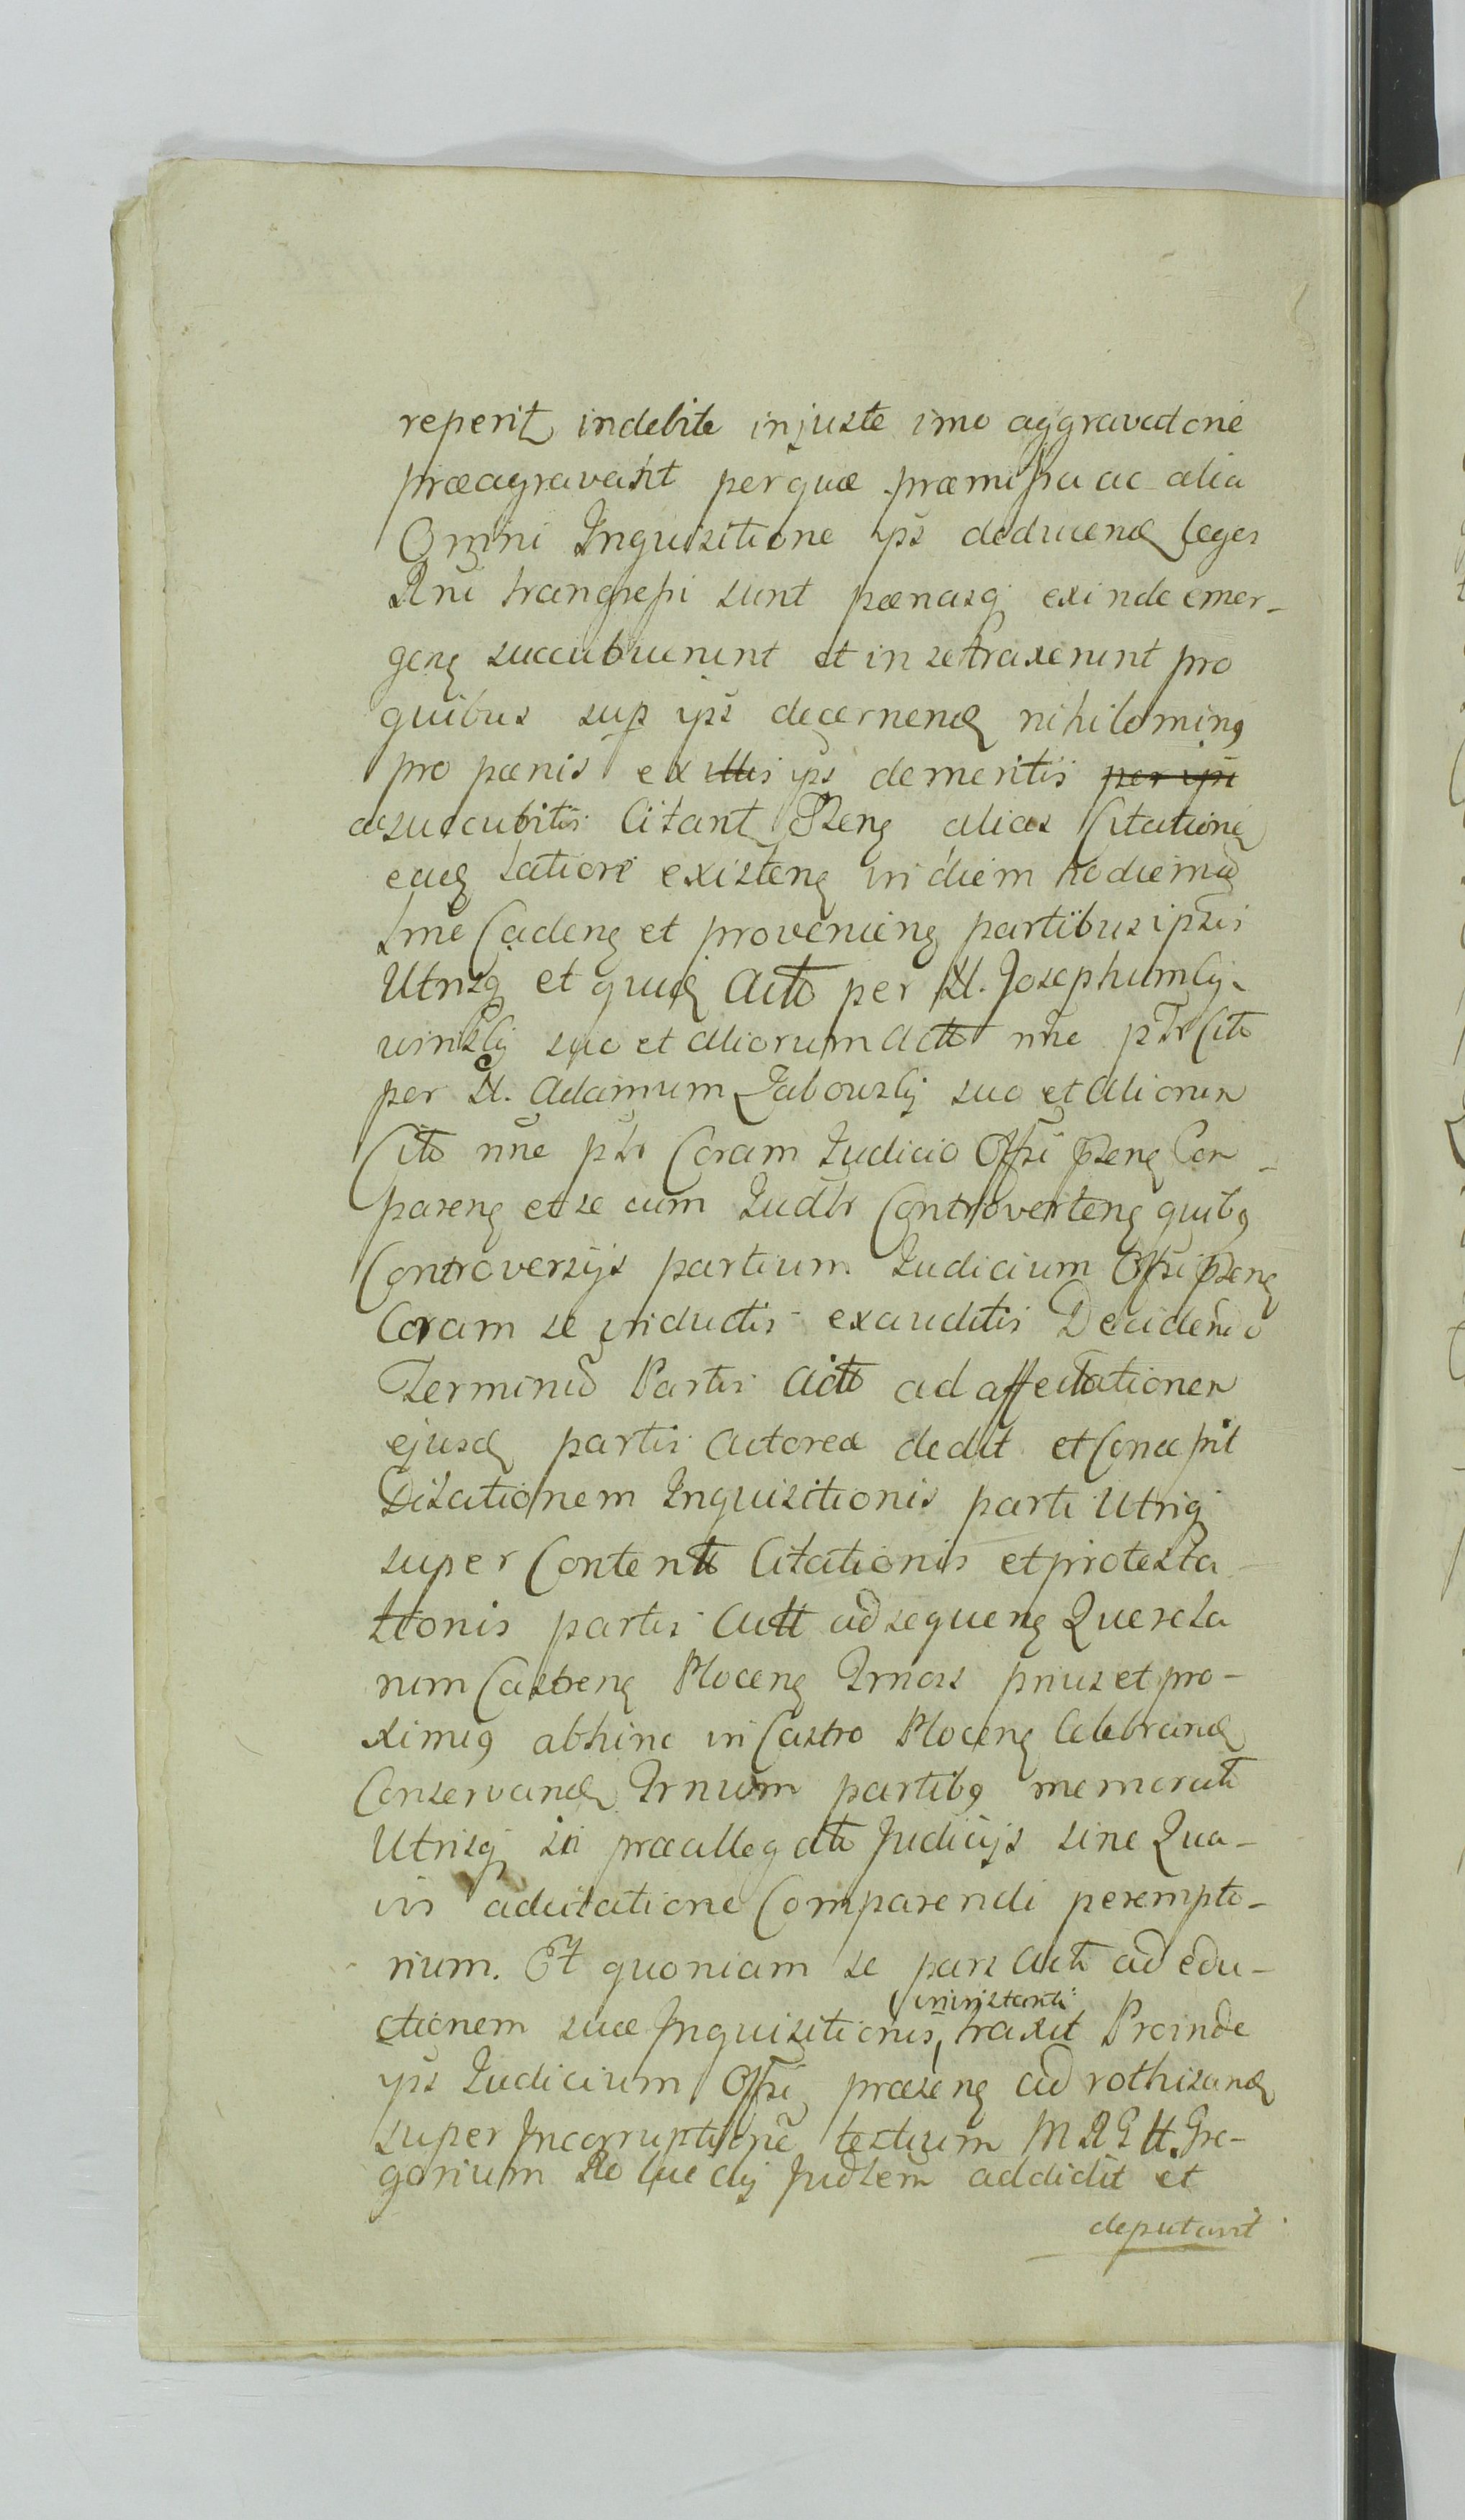 reperit indebite injuste imo aggravatone
præagravarit per quæ præmissa ac alia
Omni Inquisitione ips deducend leges
Rni trangressi sunt pœnasq exinde emer-
gen succubuerunt et in se traxerunt pro
quibus sup ips decernend nihilominq
pro pœnis ex illis ips demeritis per ipsi
ac succubitis Citant Pten alias Citatione
eaq latiore existen in diem hodiernũ
lme Caden et provenien partibus ipsis
Utrisq et quid Acto per N. Josephum
suo et aliorum Acto nne pts Cito
per N. Adamum Zabowsky suo et aliorum
Cito nne pts Coram Judicio Offi psen Com-
paren et se cum Judtr Controverten quibq
Controversijs partium Judicium Offi psen
Coram se inductis exauditis Decidendo
Terminũ Partis Acto ad affectationem
ejusd partis Actoreæ dedit et Concessit
Dilationem Inquisitionis parti Utriq
super Contentt Citationis et protesta-
tionis partis Actt ad sequen Querela
rum Castren Plocen Trnos prius et pro-
ximiq abhinc in Castro Plocen Celebrand
Conservand Trnum partibq memoratt
Utrisq in præallegatt Judicijs sine Qua-
vis adcitatione Comparendi perempto-
rium. Et quoniam se pars Actt ad edu-
ctionem suæ Inquisitionis, in instanti traxit Proinde
ips Judicium Offi præsen ad rothisand
super Incorruptione testium M R G H. Gre-
gorium Judlem addidit et
deputavit